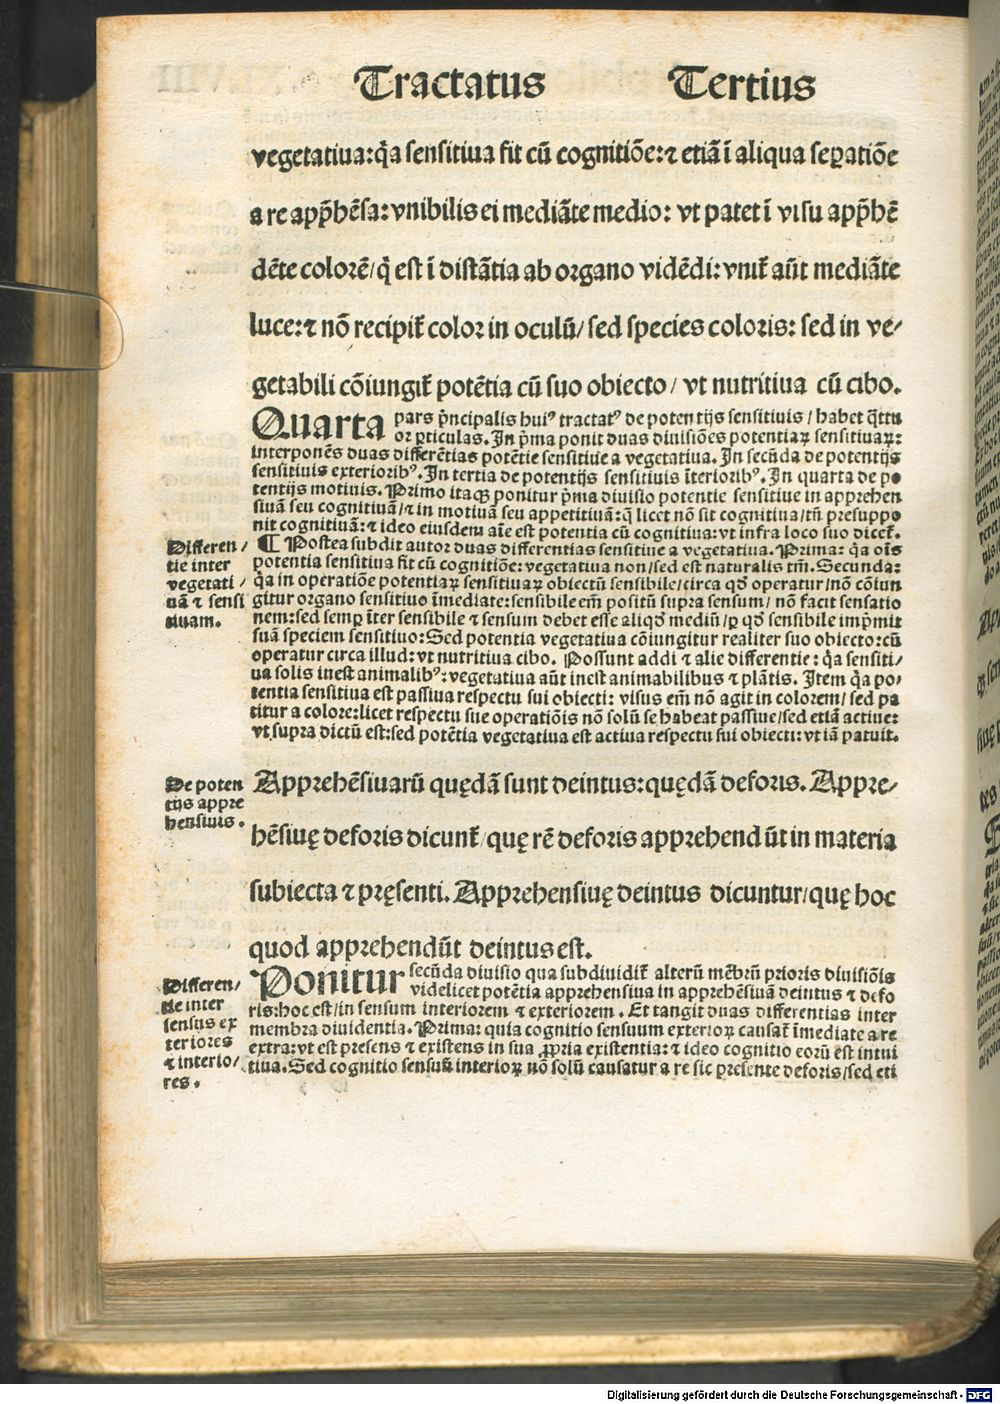 Tractatus Tertius
vegetatiua:q̃a sensitiua fit cũ cognitiõe:⁊ etiã ĩ aliqua seꝑatiõe
a re app̃hẽsa:vnibilis ei mediãte medio: vt patet ĩ visu app̃hẽ
dẽte colorẽ/q̃ est ĩ distãtia ab organo vidẽdi:vnit᷑ aũt mediãte
luce:⁊ nõ recipit᷑ color in oculũ/ sed species coloris: sed in ve/
getabili cõiungit᷑ potẽtia cũ suo obiecto/ vt nutritiua cũ cibo.
Quarta pars p̃ncipalis huiꝰ tractatꝰ de potentijs sensitiuis/ habet q̃ttu
or ꝑticulas. In p̃ma ponit duas diuisiões potentiaꝝ sensitiuaꝝ:
interponẽs duas differẽtias potẽtie sensitiue a vegetatiua. In secũda de potentijs
sensitiuis exterioribꝰ. In tertia de potentijs sensitiuis ĩterioribꝰ. In quarta de po
tentijs motiuis. Primo itaqꝫ ponitur p̃ma diuisio potentie sensitiue in apprehen
siuã seu cognitiuã/⁊ in motiuã seu appetitiuã:q̃ licet nõ sit cognitiua/tñ presuppo
nit cognitiuã:⁊ ideo eiusdem aĩe est potentia cũ cognitiua:vt infra loco suo dicet᷑.
¶ Postea subdit autor duas differentias sensitiue a vegetatiua. Prima: q̃a oĩs
potentia sensitiua fit cũ cognitiõe:vegetatiua non/sed est naturalis tm̃. Secunda:
q̃a in operatiõe potentiaꝝ sensitiuaꝝ obiectũ sensibile/circa qd̃ operatur/nõ cõiun
gitur organo sensitiuo ĩmediate:sensibile em̃ positũ supra sensum/ nõ facit sensatio
nem:sed semꝑ ĩter sensibile ⁊ sensum debet esse aliqd̃ mediũ/ꝑ qd̃ sensibile imp̃mit
suã speciem sensitiuo:Sed potentia vegetatiua cõiungitur realiter suo obiecto:cũ
operatur circa illud:vt nutritiua cibo. Possunt addi ⁊ alie differentie: q̃a sensiti/
ua solis inest animalibꝰ:vegetatiua aũt inest animabilibus ⁊ plãtis. Item q̃a po/
tentia sensitiua est passiua respectu sui obiecti: visus em̃ nõ agit in colorem/ sed pa
titur a colore:licet respectu sue operatiõis nõ solũ se habeat passiue/sed etiã actiue:
vt supra dictũ est:sed potẽtia vegetatiua est actiua respectu sui obiecti:vt iã patuit.
Differen/
tie inter
vegetati/
uã ⁊ sensi
tiuam.
De poten
tijs appre
hensiuis.
Apprehẽsiuarũ quędã sunt deintus:quędã deforis. Appre/
hẽsiuę deforis dicunt᷑/quę rẽ deforis apprehendũt in materia
subiecta ⁊ pręsenti. Apprehensiuę deintus dicuntur/quę hoc
quod apprehendũt deintus est.
Differen/
tie inter
sensus ex
teriores
⁊ interio/
res.
Ponitur secũda diuisio qua subdiuidit᷑ alterũ mẽbrũ prioris diuisiõis
videlicet potẽtia apprehensiua in apprehẽsiuã deintus ⁊ defo
ris:hoc est/in sensum interiorem ⁊ exteriorem. Et tangit duas differentias inter
membra diuidentia. Prima: quia cognitio sensuum exterioꝝ causat᷑ ĩmediate a re
extra:vt est presens ⁊ existens in sua ꝓpria existentia:⁊ ideo cognitio eorũ est intui
tiua. Sed cognitio sensuũ interioꝝ nõ solũ causatur a re sic presente deforis/sed eti
Digitalisierung gefördert durch die Deutsche Forschungsgemeinschaft - DFG